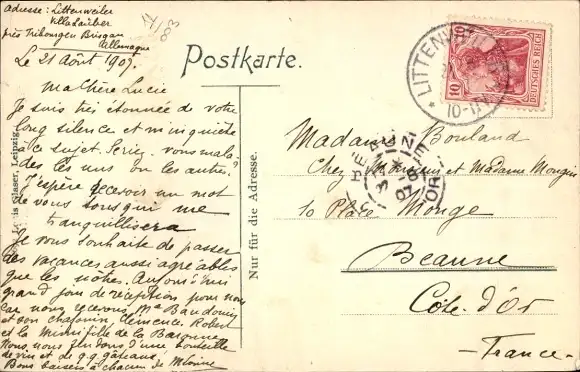 adresse : Littenweiler
Villa Lauber
près Fribourgen Brisgau
Allemagne
17/83
Le 21 Août 1907.
Ma Chère Lucie
Je suis très étonnée de votre
long silence et m'inquiète
à ce sujet. Seriez-vous mala-
des les uns ou les autres?
J'espère recevoir un mot
de vous tous qui me
tranquillisera
Je vous souhaite de passer
des vacances aussi agréables
que les nôtres. Aujourd'hui
grand jour de réception pour nous
car nous recevons Me Baudouin
et son chaperon, Clémence, Robert
et la
de la Baronne
Nous nous fendons d'une bouteille
de vin et de q.q. gâteaux.
Bons baisers à chacun de
Glaser, Leipzig
Postkarte.
Nur für die Adresse.
LITTENW
10-11
10 10
DEUTSCHES REICH
Madame Bouland
Chez Monsieur et Madame Mongin
10 Place Monge
Beaune
Côte-d'Or
-France-